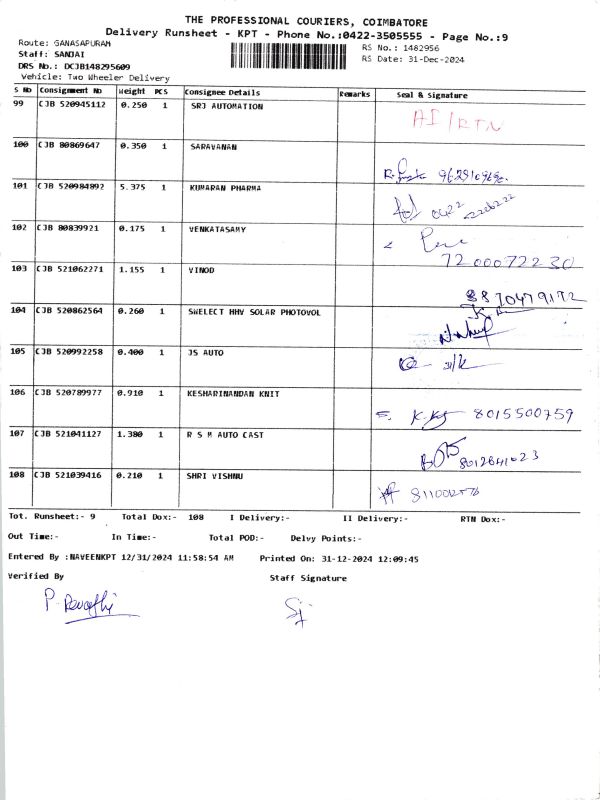 THE PROFESSIONAL COURIERS, COIMBATORE
Delivery Runsheet - KPT - Phone No.:0422-3505555 - Page No.:9
Route: GANASAPURAM
Staff: SANJAI RS No.: 1482956
DRS No.: DCJB148295609 RS Date: 31-Dec-2024
Vehicle: Two Wheeler Delivery
S No Consignment No Weight PCS Consignee Details Remarks Seal & Signature
99 CJB 520945112 0.250 1 SRJ AUTOMATION
AI/RTN
100 CJB 80869647 0.350 1 SARAVANAN
101 CJB 520984892 5.375 1 KUMARAN PHARMA
0422
102 CJB 80839921 0.175 1 VENKATASAMY
7200072230
103 CJB 521062271 1.155 1 VINOD
8870479172
104 CJB 520862564 0.260 1 SWELECT HHV SOLAR PHOTOVOL
105 CJB 520992258 0.400 1 JS AUTO
106 CJB 520789977 0.910 1 KESHARINANDAN KNIT
8015500759
107 CJB 521041127 1.380 1 R S M AUTO CAST
108 CJB 521039416 0.210 1 SHRI VISHNU
Tot. Runsheet:- 9 Total Dox:- 108 I Delivery:- II Delivery:- RTN Dox:-
Out Time:- In Time:- Total POD:- Delvy Points:-
Entered By :NAVEENKPT 12/31/2024 11:58:54 AM Printed On: 31-12-2024 12:09:45
Verified By Staff Signature